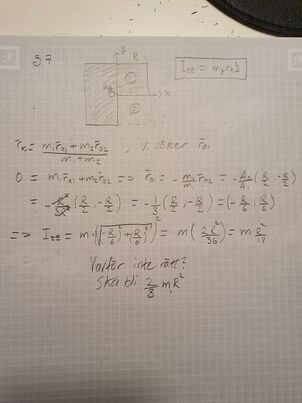 3.7
y
R
I_zz = m_z r_k²
R
①
x
②
r̄_k = (m₁r̄_G1 + m₂r̄_G2)/(m₁ + m₂) , vi söker r̄_G1
0 = m₁r̄_G1 + m₂r̄_G2 => r̄_G1 = -m₂/m₁ r̄_G2 = -A₂/A₁ (R/2, -R/2)
= -R²/3R² (R/2, -R/2) = -1/3 (R/2, -R/2) = (-R/6, R/6)
=> I_zz = m·(√((-R/6)² + (R/6)²))² = m(2R²/36) = m R²/18
Varför inte rätt?
Ska bli 2/3 mR²